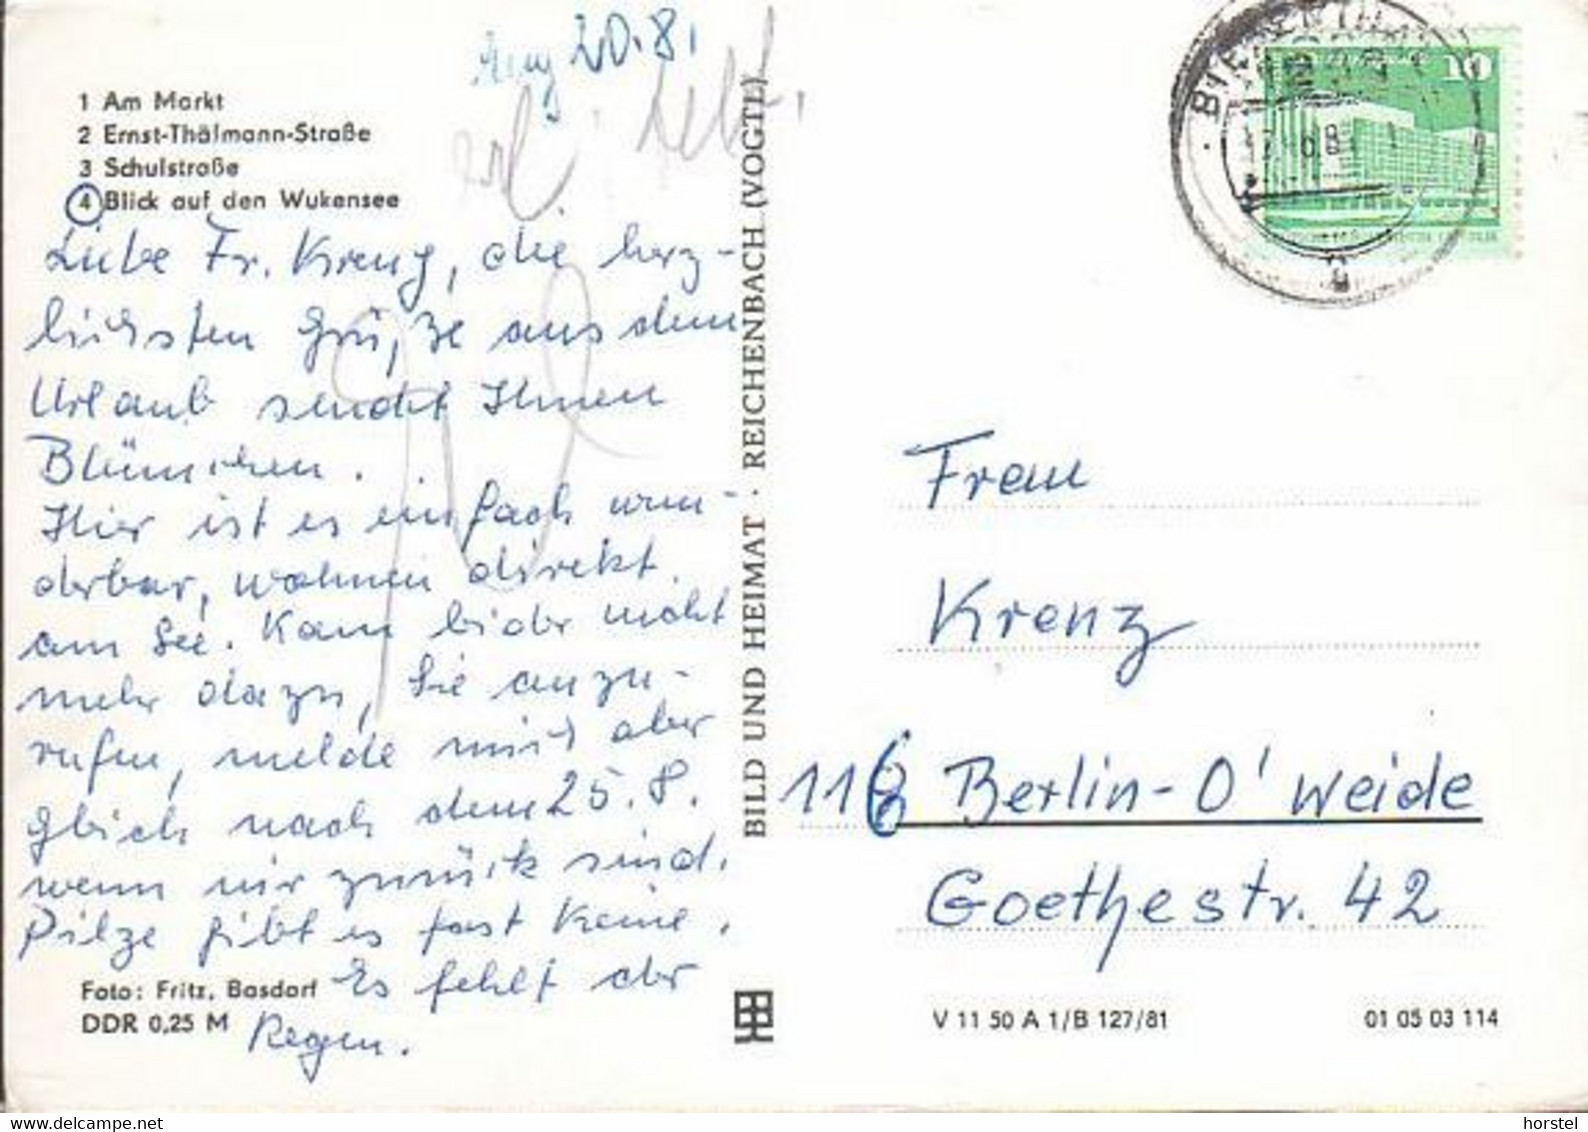 20.8.
1 Am Markt
2 Ernst-Thälmann-Straße
3 Schulstraße
4 Blick auf den Wukensee
Liebe Fr. Krenz, die herz-
lichsten Grüße aus dem
Urlaub sendet Ihnen
Blümchen.
Hier ist es einfach wun-
derbar, wohnen direkt
am See. Kam leider nicht
mehr dazu, Sie anzu-
rufen, melde mich aber
gleich nach dem 25.8.
wenn wir zurück sind.
Pilze gibt es fast keine.
Es fehlt der
Regen.
Foto: Fritz, Basdorf
DDR 0,25 M
BILD UND HEIMAT · REICHENBACH (VOGTL)
10
Frau
Krenz
116 Berlin-O'weide
Goethestr. 42
V 11 50 A 1/B 127/81
01 05 03 114
www.delcampe.net
horstel